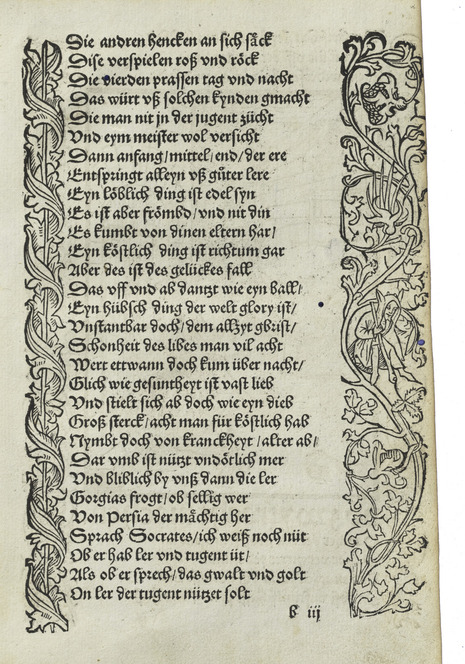 Die andren hencken an sich säck
Dise verspielen roß vnd röck
Die vierden prassen tag vnd nacht
Das würt vß solchen kynden gmacht
Die man nit jn der jugent zücht
Vnd eym meister wol versicht
Dann anfang/ mittel/ end/ der ere
Entspringt alleyn vß gůter lere
Eyn löblich ding ist edel syn
Es ist aber frömbd/ vnd nit din
Es kumbt von dinen eltern har/
Eyn köstlich ding ist richtum gar
Aber des ist des gelückes fall
Das vff vnd ab dantzt wie eyn ball/
Eyn hübsch ding der welt glory ist/
Vnstantbar doch/ dem allzyt gbrist/
Schonheit des libes man vil acht
Wert ettwann doch kum über nacht/
Glich wie gesuntheyt ist vast lieb
Vnd stielt sich ab doch wie eyn dieb
Groß sterck/ acht man für köstlich hab
Nymbt doch von kranckheyt/ alter ab/
Dar vmb ist nützt vndötlich mer
Vnd bliblich by vnß dann die ler
Gorgias frogt/ ob sellig wer
Von Persia der mächtig her
Sprach Socrates/ ich weiß noch nüt
Ob er hab ler vnd tugent üt/
Als ob er sprech/ das gwalt vnd golt
On ler der tugent nützet solt
b iij